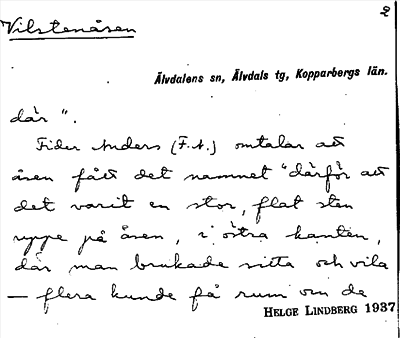 2
Vilstenåsen
Älvdalens sn, Älvdals tg, Kopparbergs län.
där".
Fider Anders (F.A.) omtalar att
åsen fått det namnet "därför att
det varit en stor, flat sten
uppe på åsen, i östra kanten,
där man brukade sitta och vila
— flera kunde få rum om de
HELGE LINDBERG 1937